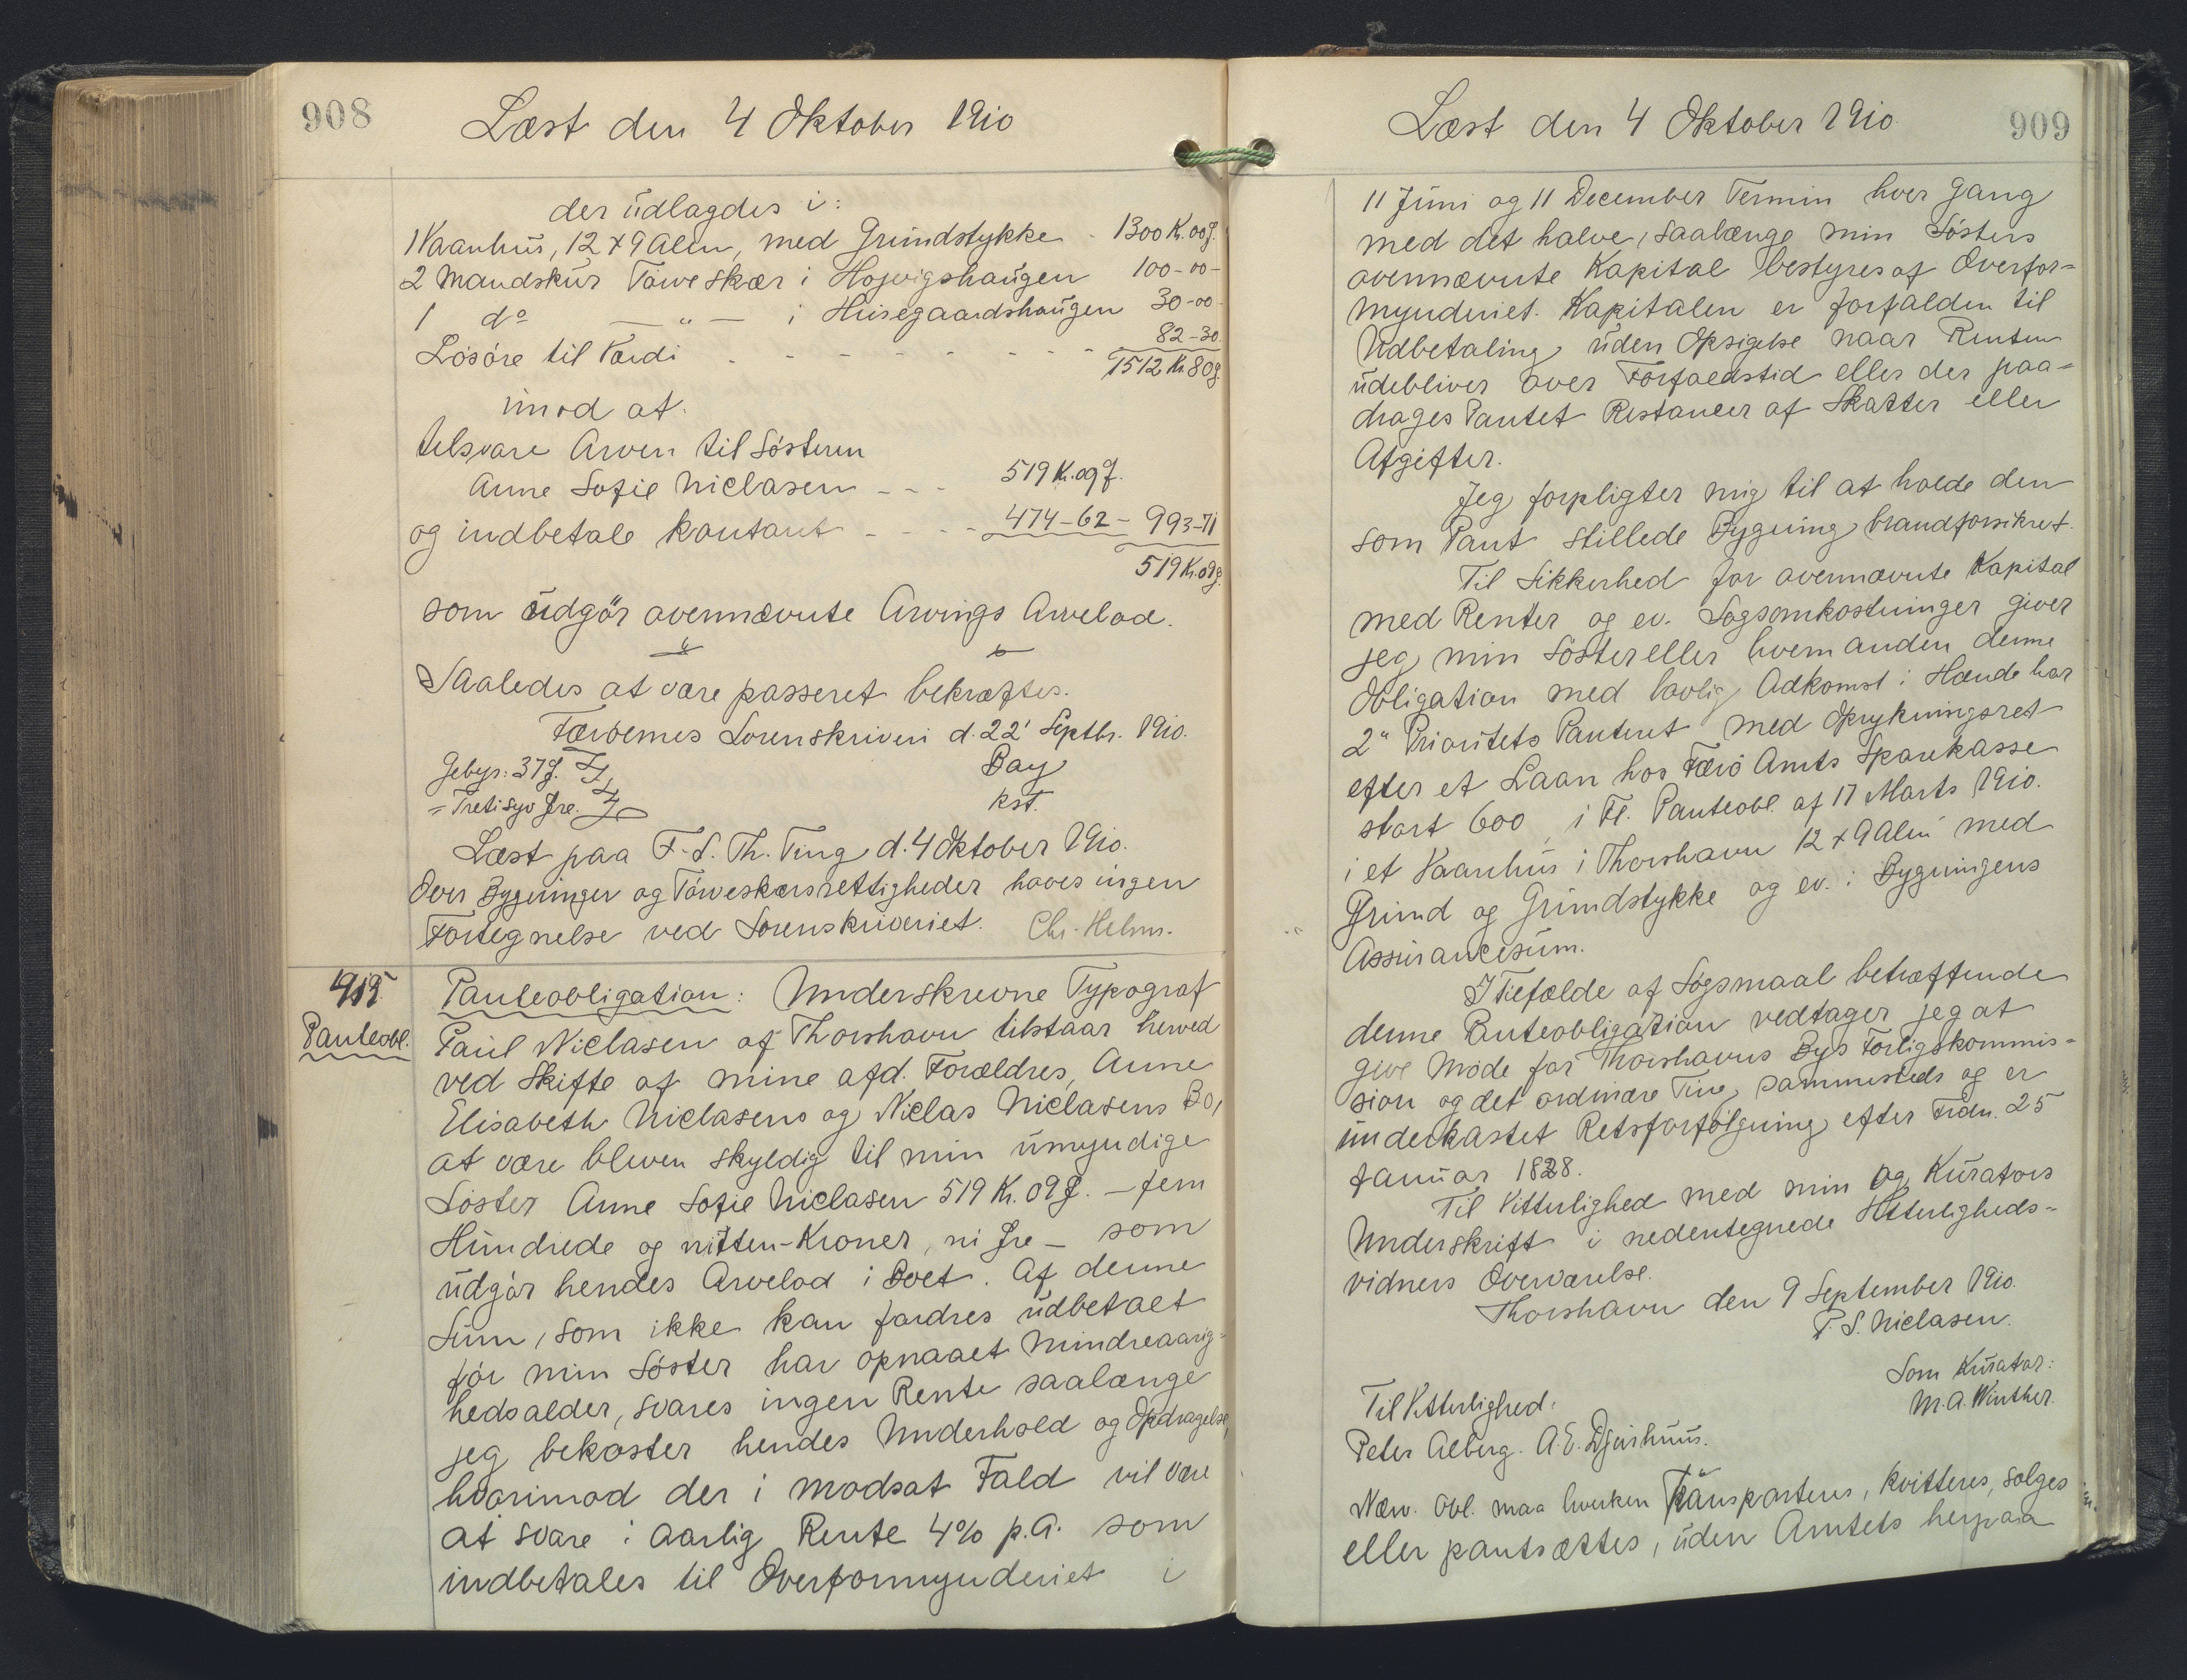 908
Læst den 4 Oktober 1910
der udlagdes i:
1 Vaanhus, 12 x 9 Alen, med Grundstykke - 1300 K. 00 Ø.
2 Mandskur Törveskær i Hojvigshaugen 100-00-
1 do — " — i Husegaardshaugen 30-00-
Lösöre til Værdi - - - - - - - 82-30.
1512 Kr 80 Ø.
imod at
tilsvare Arven til Søsteren
Anne Sofie Niclasen - - - 519 Kr. 09 Ø.
og indbetale kontant - - - - 474-62- 993-71
519 Kr. 09 Ø.
som udgör ovennævnte Arvings Arvelod.
Saaledes at være passeret bekræftes.
Færöernes Sorenskriveri d. 22' Septbr. 1910.
Gebyr: 37 Ø. Bay
= Tretisyv Øre. kst.
Læst paa F. S. Th. Ting d. 4 Oktober 1910.
Over Bygninger og Törveskærsrettigheder haves ingen
Fortegnelse ved Sorenskriveriet. Chr. Helms.
415.
Panteobl.
Panteobligation: Underskrevne Typograf
Paul Niclasen af Thorshavn tilstaar herved
ved Skifte af mine afd. Forældres, Anne
Elisabeth Niclasens og Niclas Niclasens Bo,
at være bleven skyldig til min umyndige
Søster Anne Sofie Niclasen 519 Kr. 09 Ø. - fem
Hundrede og nitten-Kroner, ni Øre - som
udgör hendes Arvelod i Boet. Af denne
Sum, som ikke kan fordres udbetalt
för min Søster har opnaaet Mindreaarig=
hedsalder, svares ingen Rente saalænge
jeg bekoster hendes Underhold og Opdragelse,
hvorimod der i modsat Fald vil være
at svare i aarlig Rente 4% p.A. som
indbetales til Overformynderiet i
Læst den 4 Oktober 1910.
909
11 Juni og 11 December Termin hver Gang
med det halve, saalænge min Søsters
ovennævnte Kapital bestyres af Overfor=
mynderiet. Kapitalen er forfalden til
Udbetaling uden Opsigelse naar Renten
udebliver over Forfaldstid eller der paa=
drages Pantet Restancer af Skatter eller
Afgifter.
Jeg forpligter mig til at holde den
som Pant stillede Bygning brandforsikret.
Til Sikkerhed for ovennævnte Kapital
med Renter og ev. Sagsomkostninger giver
jeg min Søster eller hvem anden denne
Obligation med lovlig Adkomst i Hænde har
2" Prioritets Panteret med Oprykningsret
efter et Laan hos Færö Amts Sparekasse
stort 600, i Fl. Panteobl. af 17 Marts 1910.
i et Vaanhus i Thorshavn 12 x 9 Alen med
Grund og Grundstykke og ev. i Bygningens
Assurancesum.
I Tilfælde af Søgsmaal betræffende
denne Panteobligation vedtager jeg at
give Möde for Thorshavns Bys Forligskommis=
sion og det ordinære Ting sammesteds og er
underkastet Retsforfölgning efter Frdn. 25
Januar 1828.
Til Vitterlighed med min og Kurators
Underskrift i nedentegnede Vitterligheds=
vidners Overværelse.
Thorshavn den 9 September 1910.
P. S. Niclasen.
Som Kurator:
M. A. Winther.
Til Vitterlighed:
Peter Alberg. A. E. Djurhuus.
Nærv. Obl. maa hverken transporteres, kvitteres, sælges
eller pantsættes, uden Amtets herpaa